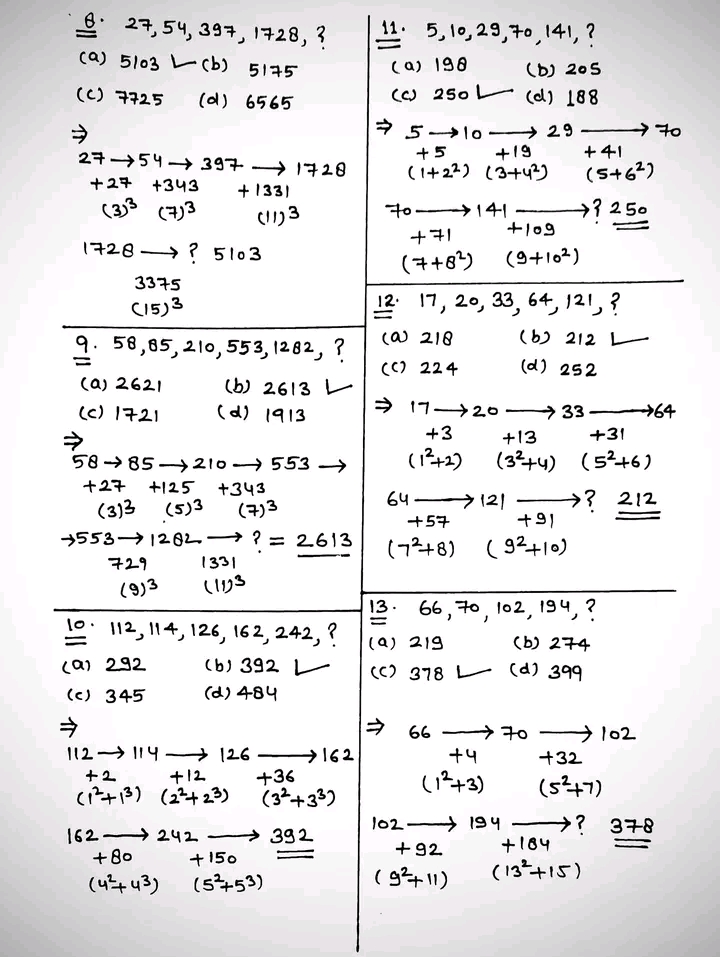 8. 27, 54, 397, 1728, ?
(a) 5103 ✓ (b) 5175
(c) 7725 (d) 6565
⇒
27 → 54 → 397 → 1728
+27 +343 +1331
(3)³ (7)³ (11)³
1728 → ? 5103
3375
(15)³
9. 58, 85, 210, 553, 1282, ?
(a) 2621 (b) 2613 ✓
(c) 1721 (d) 1913
⇒
58 → 85 → 210 → 553 →
+27 +125 +343
(3)³ (5)³ (7)³
→ 553 → 1282 → ? = 2613
729 1331
(9)³ (11)³
10. 112, 114, 126, 162, 242, ?
(a) 292 (b) 392 ✓
(c) 345 (d) 484
⇒
112 → 114 → 126 → 162
+2 +12 +36
(1²+1³) (2²+2³) (3²+3³)
162 → 242 → 392
+80 +150
(4²+4³) (5²+5³)
11. 5, 10, 29, 70, 141, ?
(a) 198 (b) 205
(c) 250 ✓ (d) 188
⇒ 5 → 10 → 29 → 70
+5 +19 +41
(1+2²) (3+4²) (5+6²)
70 → 141 → ? 250
+71 +109
(7+8²) (9+10²)
12. 17, 20, 33, 64, 121, ?
(a) 218 (b) 212 ✓
(c) 224 (d) 252
⇒ 17 → 20 → 33 → 64
+3 +13 +31
(1²+2) (3²+4) (5²+6)
64 → 121 → ? 212
+57 +91
(7²+8) (9²+10)
13. 66, 70, 102, 194, ?
(a) 219 (b) 274
(c) 378 ✓ (d) 399
⇒ 66 → 70 → 102
+4 +32
(1²+3) (5²+7)
102 → 194 → ? 378
+92 +184
(9²+11) (13²+15)